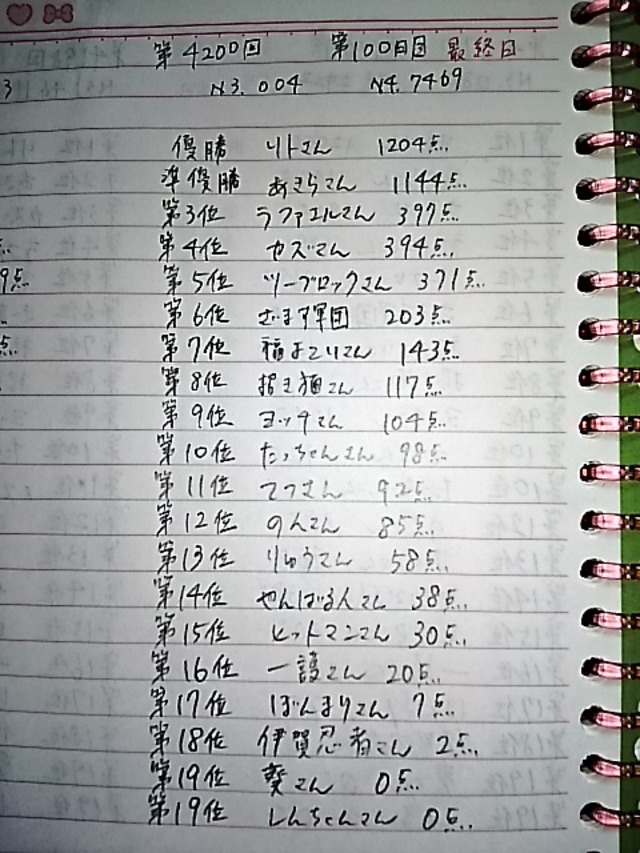 第4200回 第100回目 最終日
N3.004 N4.7469
優勝 リトさん 1204点
準優勝 あきらさん 1144点
第3位 ラファエルさん 397点
第4位 カズさん 394点
第5位 ツーブロックさん 371点
第6位 ざます軍団 203点
第7位 福まこりさん 143点
第8位 招き猫さん 117点
第9位 ヨッチさん 104点
第10位 たっちゃんさん 98点
第11位 てつさん 92点
第12位 のんさん 85点
第13位 りゅうさん 58点
第14位 やんばる人さん 38点
第15位 ヒットマンさん 30点
第16位 一護さん 20点
第17位 ぽんまりさん 7点
第18位 伊賀忍者さん 2点
第19位 葵さん 0点
第19位 しんちゃんさん 0点